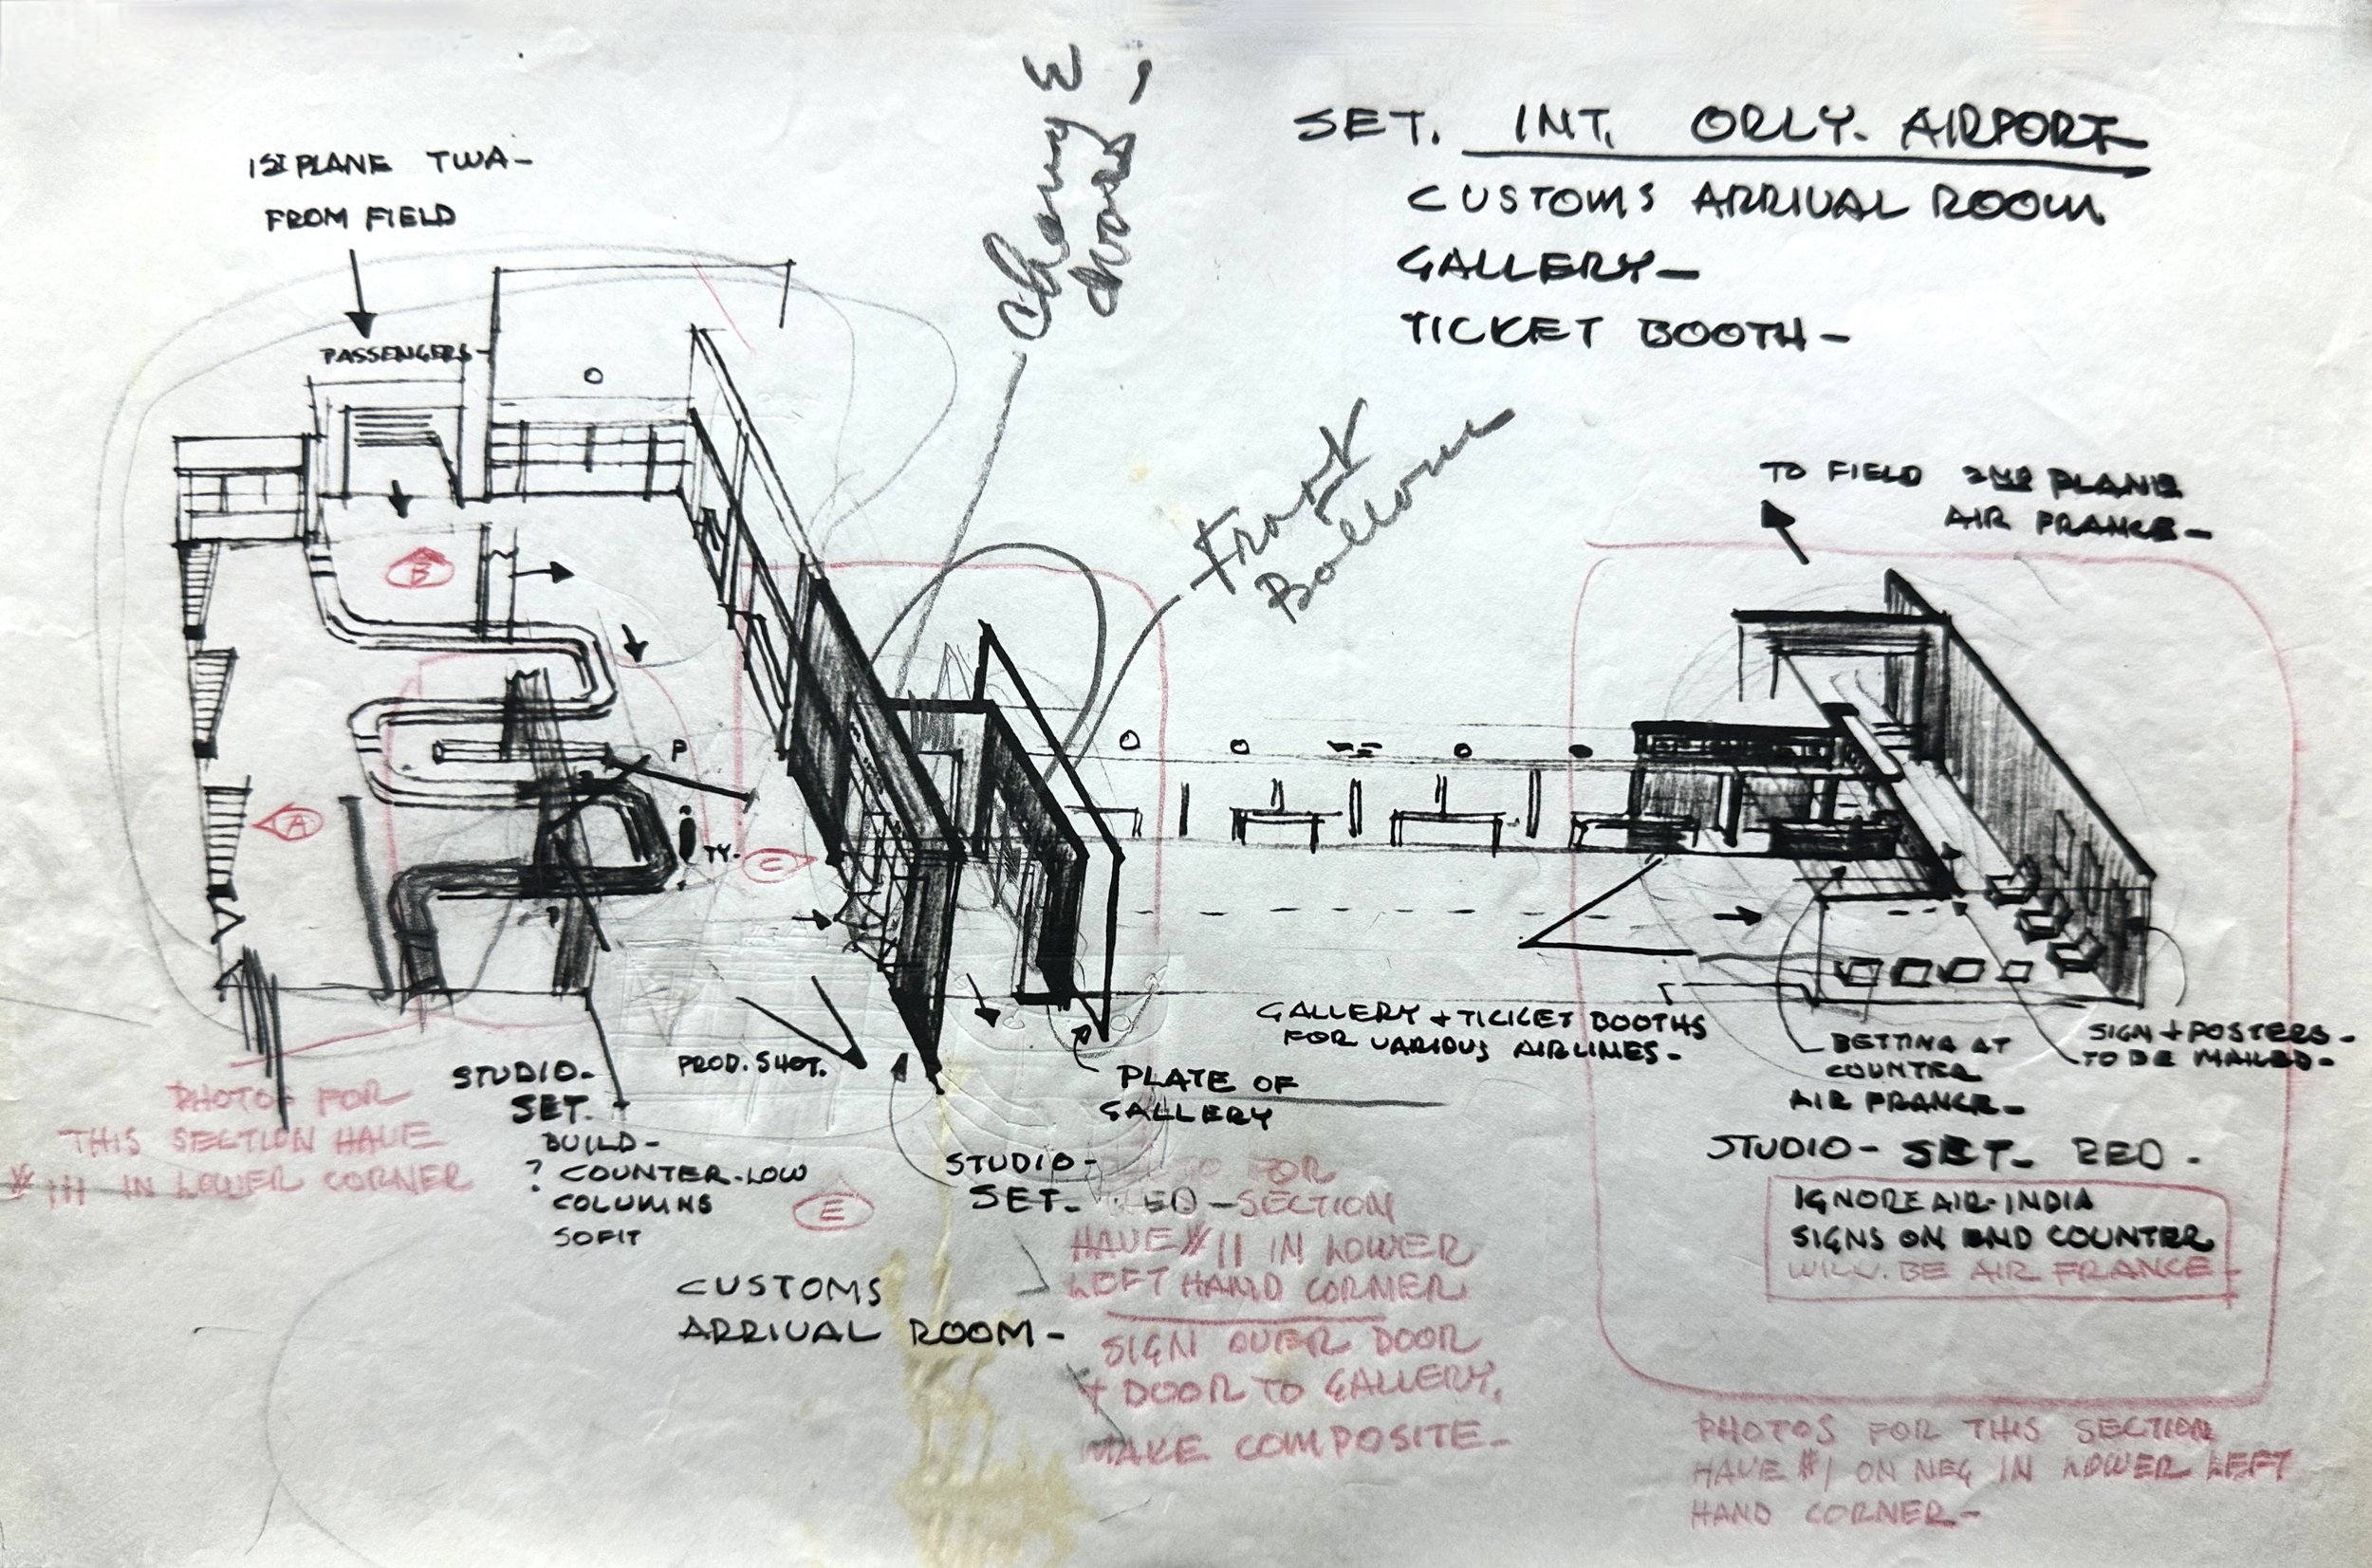 SET. INT. ORLY. AIRPORT
CUSTOMS ARRIVAL ROOM
GALLERY-
TICKET BOOTH-
1ST PLANE TWA-
FROM FIELD
PASSENGERS-
Change
doors,
Front
TO FIELD 2ND PLANE
AIR FRANCE-
B
A
C
P
TY.
PROD. SHOT.
GALLERY + TICKET BOOTHS
FOR VARIOUS AIRLINES-
PLATE OF
GALLERY
BETTING AT
COUNTER
AIR FRANCE-
SIGN + POSTERS-
TO BE MAILED-
STUDIO-
SET.
BUILD-
? COUNTER-LOW
COLUMNS
SOFIT
E
PHOTOS FOR
THIS SECTION HAVE
# 111 IN LOWER CORNER
STUDIO-
SET-
FOR
SECTION
HAVE #11 IN LOWER
LEFT HAND CORNER
SIGN OVER DOOR
+ DOOR TO GALLERY.
MAKE COMPOSITE-
CUSTOMS
ARRIVAL ROOM-
STUDIO- SET- RED-
IGNORE AIR-INDIA
SIGNS ON END COUNTER
WILL BE AIR FRANCE-
PHOTOS FOR THIS SECTION
HAVE #1 ON NEG IN LOWER LEFT
HAND CORNER-